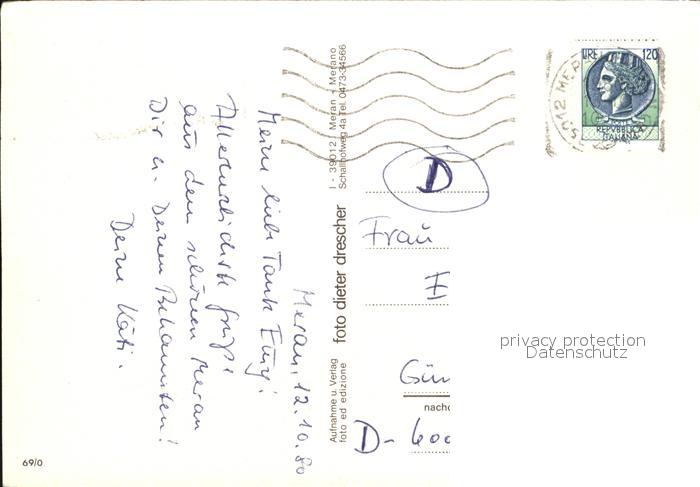 Meran, 12.10.80
Meine liebe Tante
Allerherzlichste Grüße
aus dem schönen Meran
Dir u. Deinen Bekannten!
Deine Käti.
I - 39012 - Meran - Merano
Schallhofweg 4a Tel. 0473-34566
foto dieter drescher
Aufnahme u. Verlag
foto ed edizione
LIRE 120
REPVBBLICA
ITALIANA
D
Frau
E
Gün
nacho
D-
privacy protection
Datenschutz
69/0